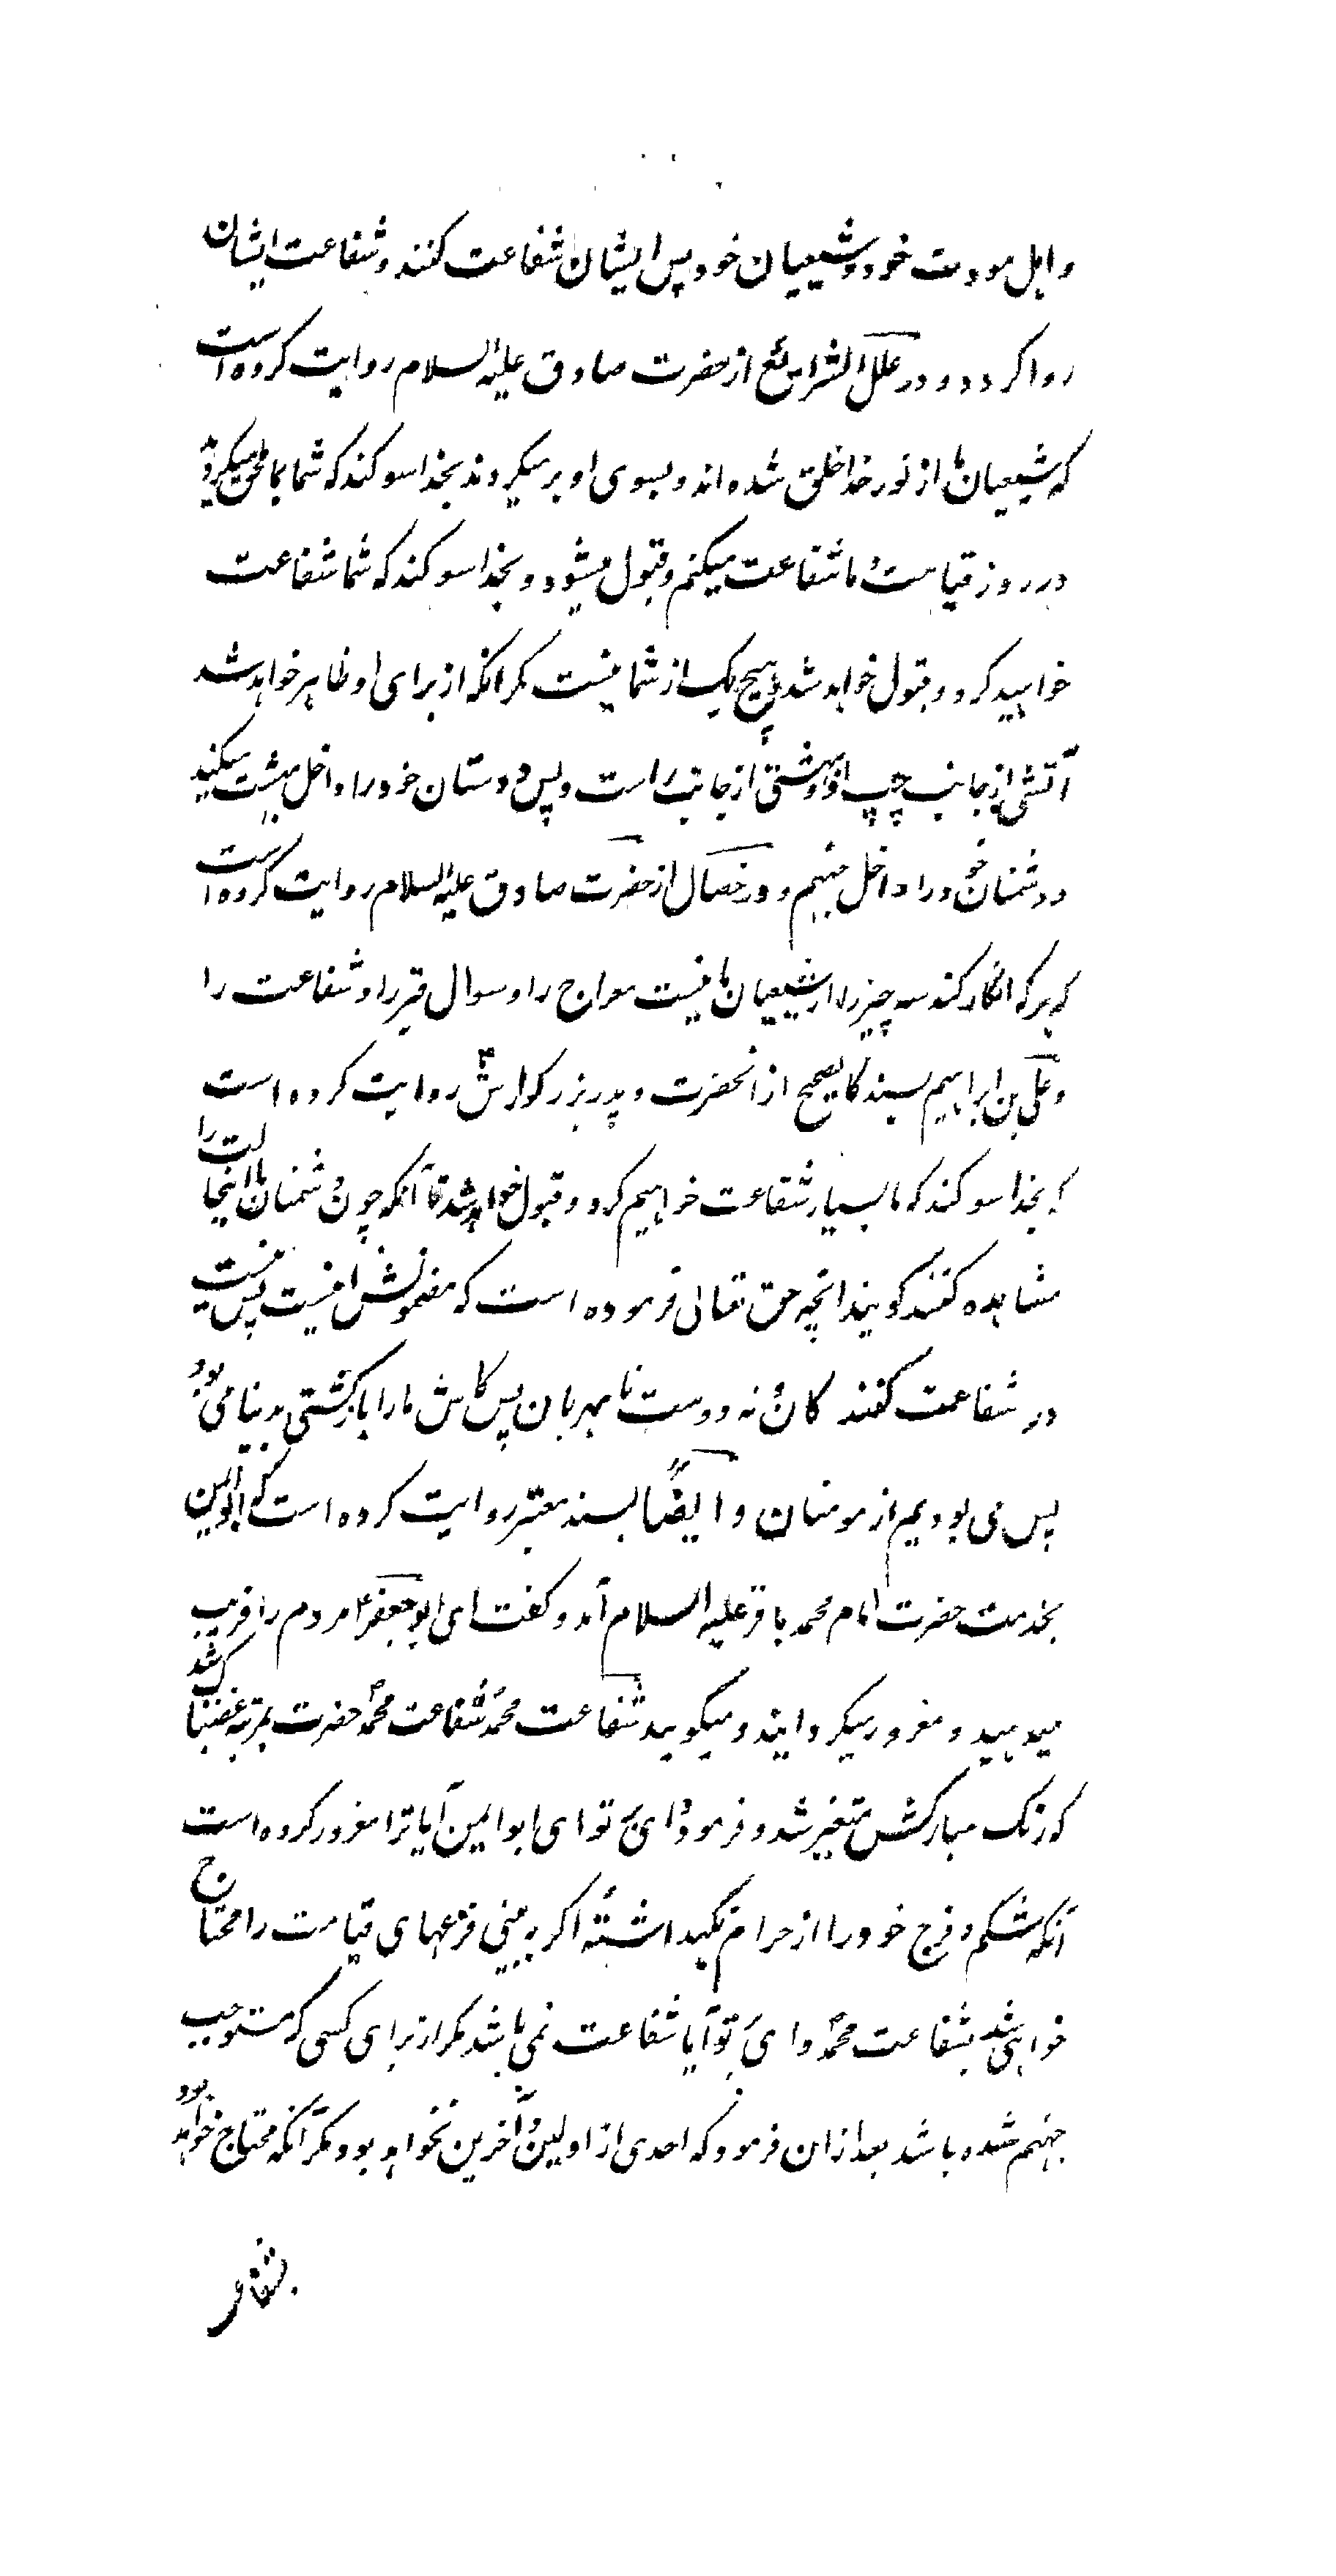 و اهل مودت خود و شیعیان خود پس ایشان شفاعت کنند و شفاعت ایشان
روا کردد و در علل الشرایع از حضرت صادق علیه السلام روایت کرده است
که شیعیان ما از نور خدا خلق شده اند و بسوی او بر میکردند بخدا سوکند که شما بما ملحق میکردید
در روز قیامت و ما شفاعت میکنیم و قبول میشود و بخدا سوکند که شما شفاعت
خواهید کرد و قبول خواهد شد و هیچ یک از شما نیست مکر انکه از برای او ظاهر خواهد شد
آتشی از جانب چپ او و بهشتی از جانب راست و پس دوستان خود را داخل بهشت میکنید
و دشمنان خود را داخل جهنم و در خصال از حضرت صادق علیه السلام روایت کرده است
که هر که انکار کند سه چیز را از شیعیان ما نیست معراج را و سوال قبر را و شفاعت را
و علی بن ابراهیم بسند کالصحیح از انحضرت و پدر بزرکوارش ع روایت کرده است
که بخدا سوکند که ما بسیار شفاعت خواهیم کرد و قبول خواهد شد تا آنکه چون دشمنان ما اینحالت را
مشاهده کنند کویند انچه حق تعالی فرموده است که مضمونش اینست پس نیست
در شفاعت کنند کان و نه دوست مهربان پس کاش ما را باز کشتی بدنیا می بود
پس می بودیم از مومنان و ایضا بسند معتبر روایت کرده است که ابو ایمن
بخدمت حضرت امام محمد باقر علیه السلام آمد و کفت ای ابو جعفر مردم را فریب
میدهید و مغرور میکردانید و میکویید شفاعت محمد شفاعت محمد حضرت بمرتبه غضبناک شد
که رنک مبارکش متغیر شد و فرمود وای بر تو ای ابو ایمن آیا ترا مغرور کرده است
آنکه شکم و فرج خود را از حرام نکهداشتهٔ اکر به بینی فزعهای قیامت را محتاج
خواهی شد بشفاعت محمد وای بر تو آیا شفاعت نمی باشد مکر از برای کسی که مستوجب
جهنم شده باشد بعد ازان فرمود که احدی از اولین و آخرین نخواهد بود مکر آنکه محتاج خواهد بود